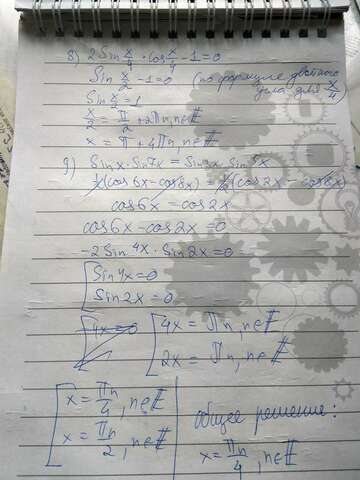 8) 2Sin x/4 · cos x/4 - 1 = 0
Sin x/2 - 1 = 0 (по формуле двойного
угла для x/4)
Sin x/2 = 1
x/2 = π/2 + 2πn, n∈Z
x = π + 4πn, n∈Z
9) Sinx · Sin7x = Sin3x · Sin5x
1/2(cos6x - cos8x) = 1/2(cos2x - cos8x)
cos6x = cos2x
cos6x - cos2x = 0
-2Sin4x · Sin2x = 0
[ Sin4x = 0
Sin2x = 0
[ 4x = 0 [ 4x = πn, n∈Z
2x = πn, n∈Z
[ x = πn/4, n∈Z
x = πn/2, n∈Z
общее решение:
x = πn/4, n∈Z